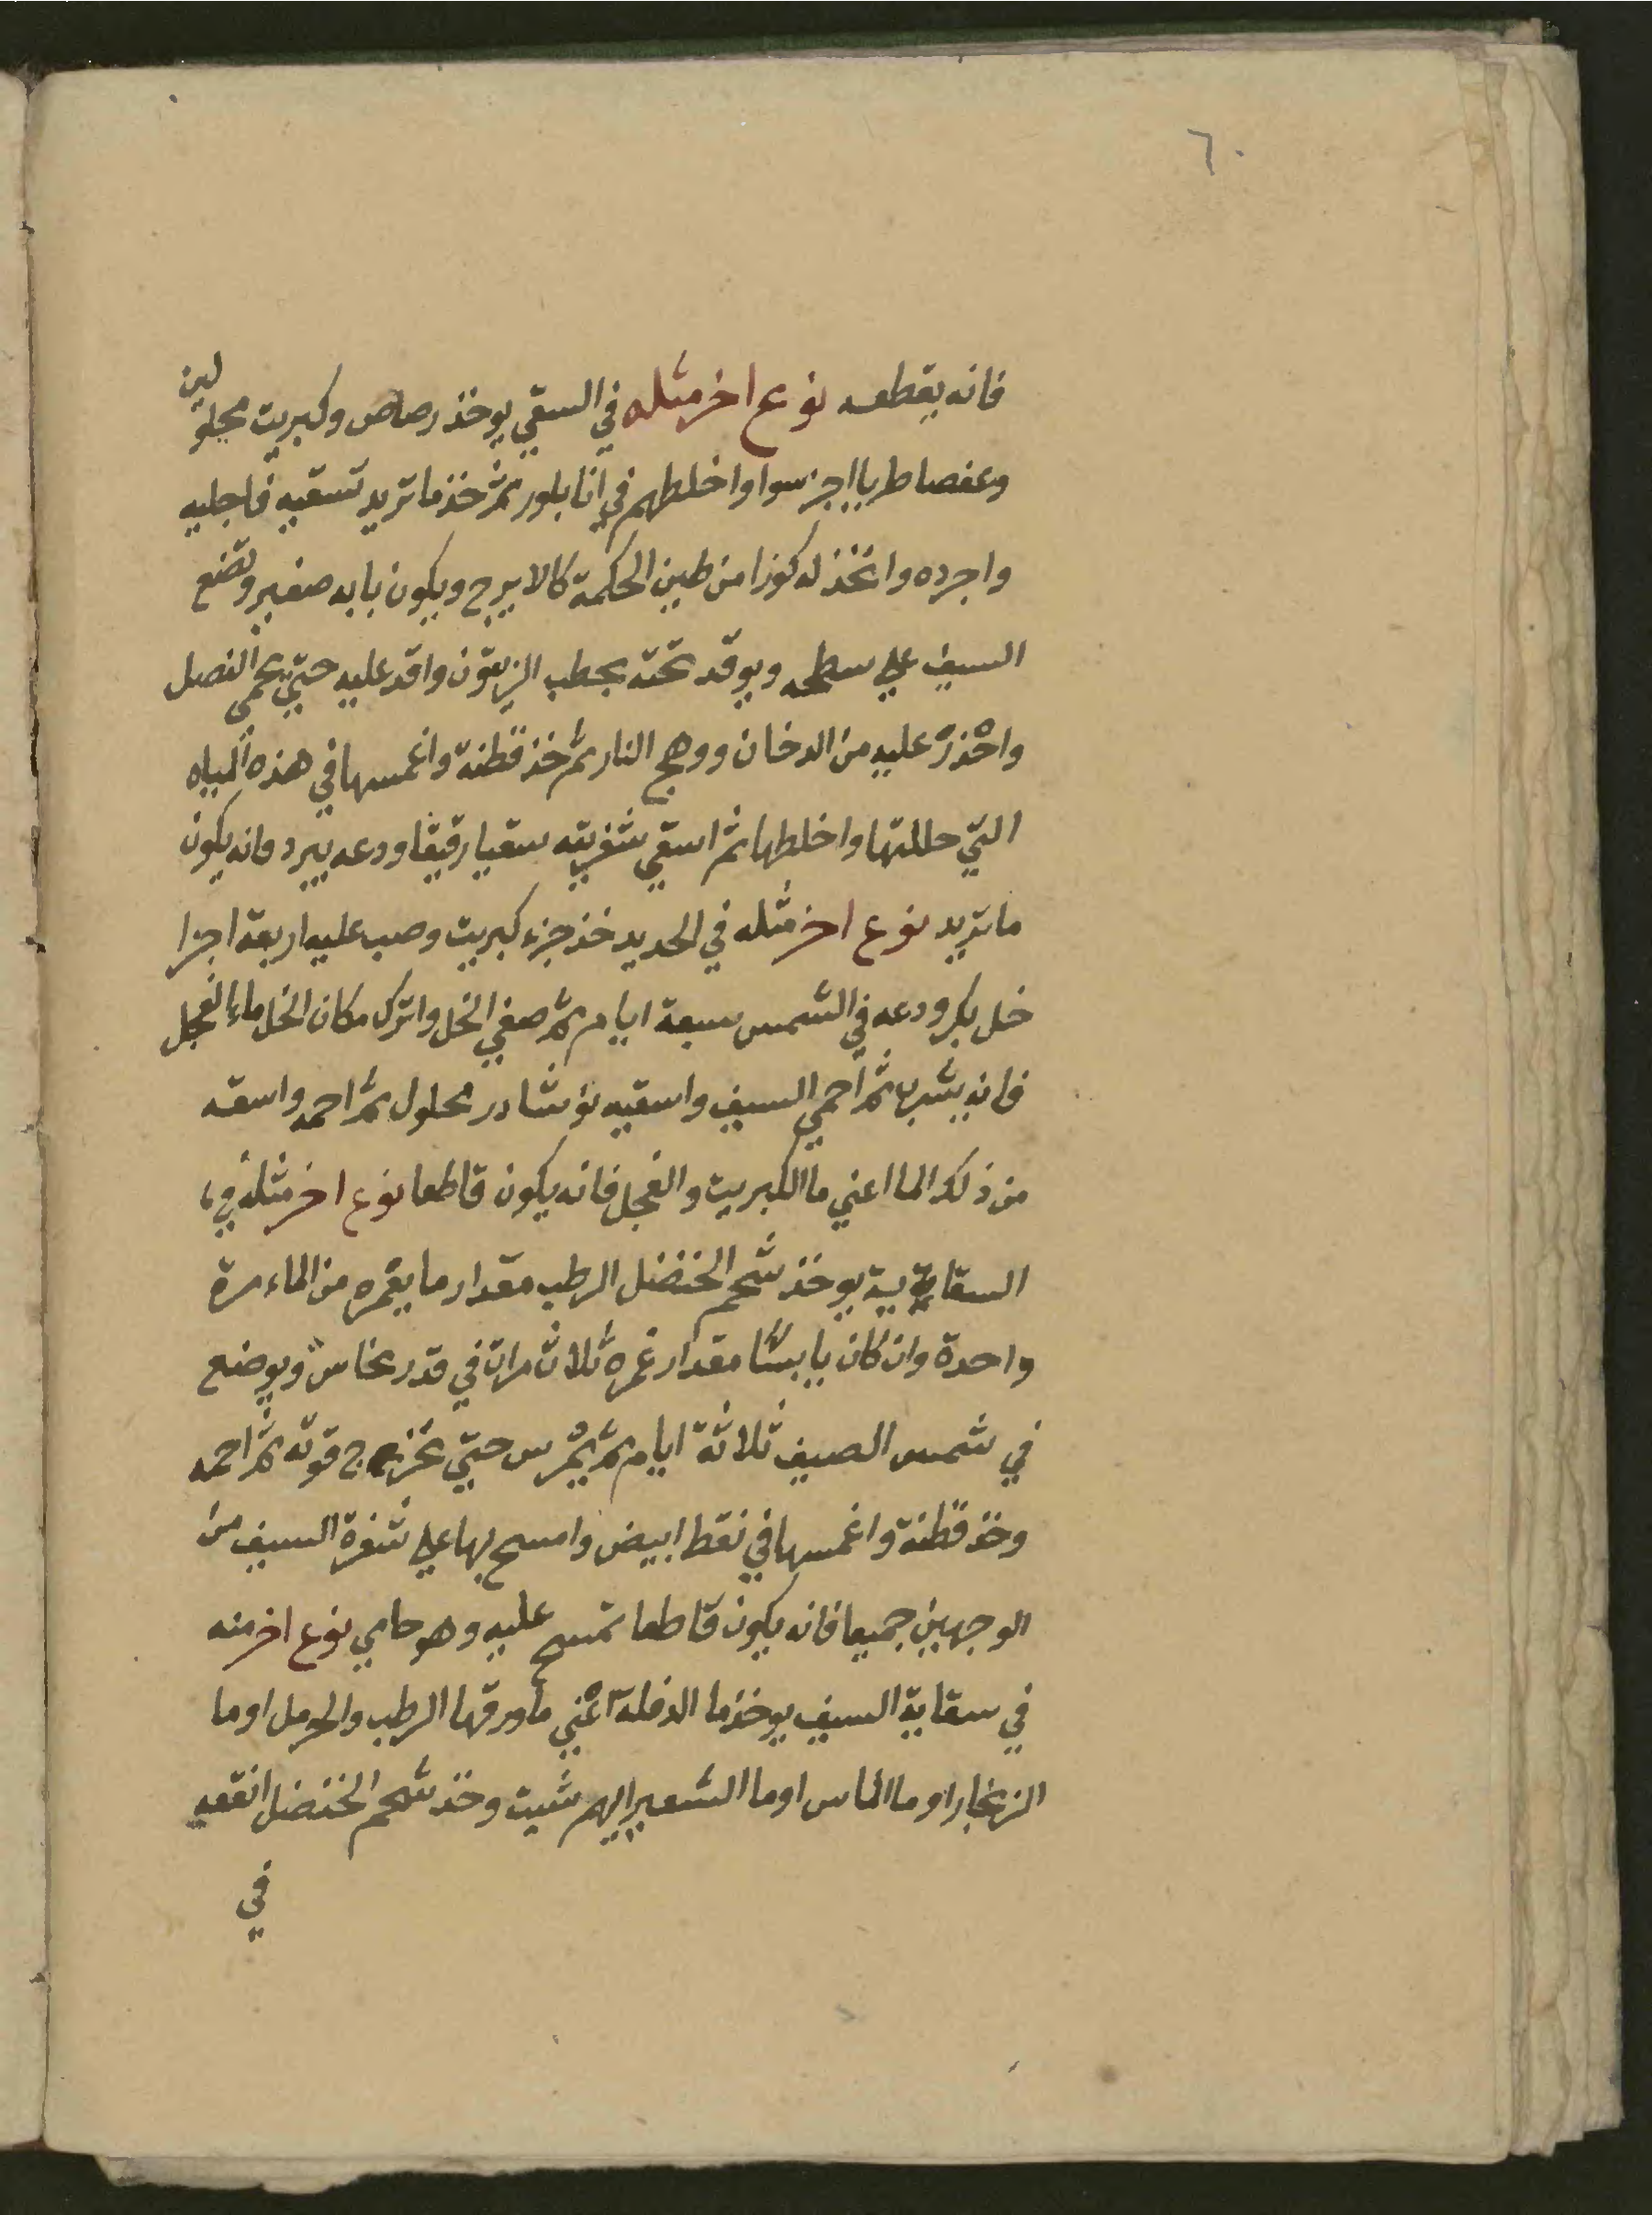 ٦٠
فانه يقطعه نوع اخر مثله في السقي يوخذ رصاص وكبريت محلولين
وعفصا طريا اجز سوا واخلطهم في انا بلور ثم خذ ما تريد تسقيه فاجليه
واجرده واتخذ له كوزا من طين الحكمة كالابرج ويكون بابه صغير وتضع
السيف علي سطحه ويوقد تحته بحطب الزيتون واقد عليه حتي يحمى النصل
واحْذرْ عليه من الدخان ووهج النار ثم خذ قطنة واغمسها في هذه المياه
التي حللتها واخلطها ثم اسقي شفريته سقيا رقيقا ودعه يبرد فانه يكون
ما تريد نوع اخر مثله في الحديد خذ جزء كبريت وصب عليه اربعة اجزا
خل بكر ودعه في الشمس سبعة ايام ثم صفي الخل واترك مكان الخل ماء الفجل
فانه يشربه ثم احمي السيف واسقيه نوشادر محلول ثم احمه واسقه
من ذلك الما اعني ما الكبريت والفجل فانه يكون قاطعا نوع اخر مثله في
السقاية يوخذ شحم الحنضل الرطب مقدار ما يغمره من الماء مرة
واحدة وان كان يابسًا مقدار غمره ثلاث مرات في قدر نحاس ويوضع
في شمس الصيف ثلاثة ايام ثم يمرس حتي تخرج قوته ثم احمه
وخذ قطنة واغمسها في نقط ابيض وامسح بها علي شفرة السيف من
الوجهين جميعا فانه يكون قاطعا تمسح عليه وهو حامي نوع اخر منه
في سقاية السيف يوخذ ما الدفلة اعْني ما ورقها الرطب والحرمل او ما
الزنجار او ما الماس او ما الشعير ايهم شيت وخذ شحم الحنضل انقعه
في